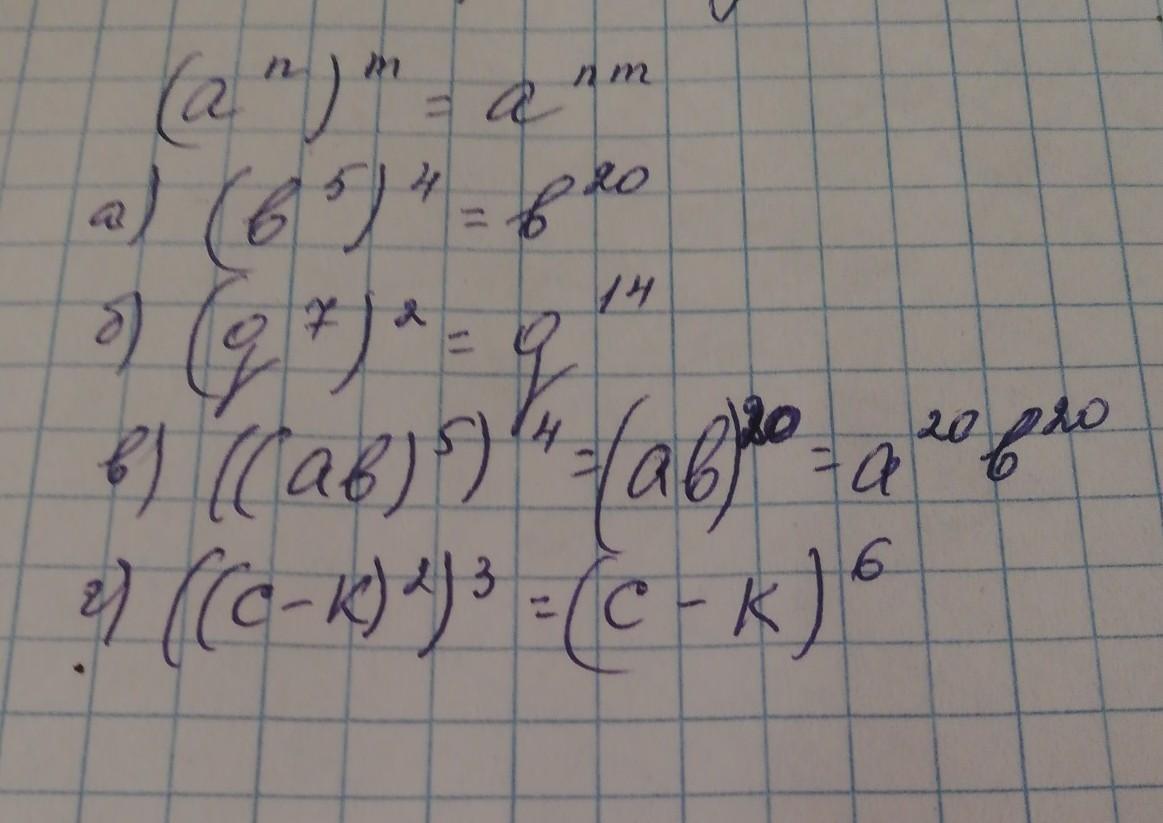 (a^n)^m = a^nm
а) (b^5)^4 = b^20
б) (q^7)^2 = q^14
в) ((ab)^5)^4 = (ab)^20 = a^20 b^20
г) ((c-k)^2)^3 = (c-k)^6